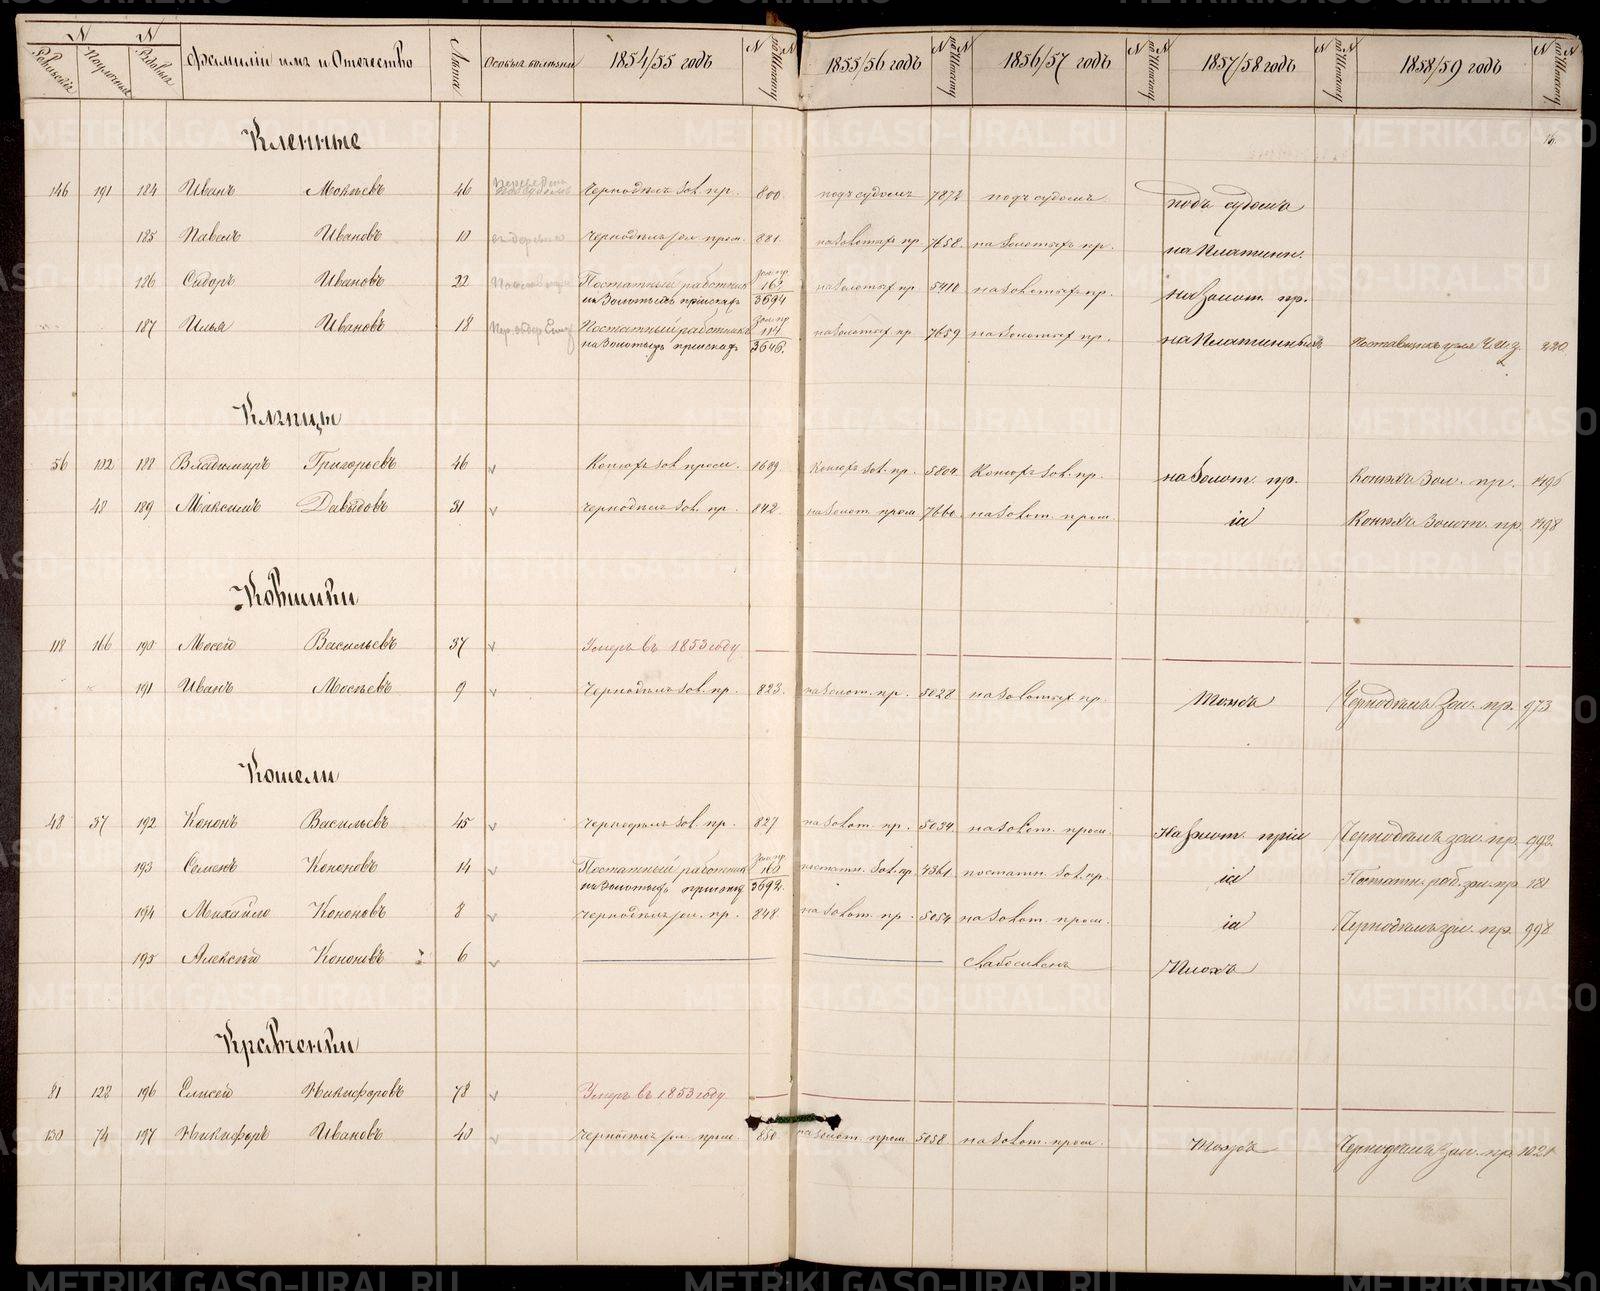 N N
Ревизскіе Поручные Рядовые Фамиліи имя и Отечество Лѣта Особыя болѣзни 1854/55 годъ N 1855/56 годъ N 1856/57 годъ N 1857/58 годъ N 1858/59 годъ N
16.
Кленные
146 191 184 Иванъ Мокѣевъ 46 Чернодѣлъ зол. пр. 800. подъ судомъ 7872 подъ судомъ подъ судомъ
185 Павелъ Ивановъ 10 Чернодѣлъ зол. пром. 881. на Золотых пр. 7658 на Золотых пр. на Платинн.
186 Сидоръ Ивановъ 22 Постатный работникъ на Золотыхъ пріискахъ зол. пр. 162 3694 на Золотых пр. 5410 на Золотых пр. на Золот. пр.
187 Илья Ивановъ 18 Постатный работникъ на Золотыхъ пріискахъ зол. пр. 114 3646. на Золотых пр. 7659 на Золотых пр. на Платинныхъ 220.
Клѣпцы
56 102 188 Владимиръ Григорьевъ 46 v Конюхъ зол. пром. 1689 Конюхъ зол. пр. 5804 Конюхъ зол. пр. на Золот. пр. Конюхъ Зол. пр. 1496
48 189 Максимъ Давыдовъ 31 v Чернодѣлъ зол. пр. 842 на Золот. пром. 7660 на Золот. пром. id Конюхъ Золот. пр. 1498
Ковшики
118 166 190 Мосей Васильевъ 37 v Умеръ въ 1853 году
191 Иванъ Мосѣевъ 9 v Чернодѣлъ зол. пр. 823. на Золот. пр. 5028 на Золотых пр. Тожъ Чернодѣлъ Зол. пр. 973
Кошели
48 37 192 Кононъ Васильевъ 45 v Чернодѣлъ зол. пр. 827 на Золот. пр. 5034 на Золот. пром. На Золот. пріи Чернодѣлъ зол. пр. 992
193 Семенъ Кононовъ 14 v Постатный работникъ на Золотыхъ пріискахъ зол. пр. 160 3692. постатн. зол. пр. 4361 постатн. зол. пр. id Постатн. раб. зол. пр. 181
194 Михайло Кононовъ 8 v Чернодѣлъ зол. пр. 848 на Золот. пр. 5054 на Золот. пром. id Чернодѣлъ зол. пр. 998
195 Алексѣй Кононовъ 6 v
Кравченки
81 122 196 Елисей Никифоровъ 78 v Умеръ въ 1853 году
130 74 197 Никифоръ Ивановъ 40 v Чернодѣлъ зол. пром. 850 на Золот. пром. 5058 на Золот. пром. Тожъ Чернодѣлъ Зол. пр. 1021
METRIKI.GASO-URAL.RU